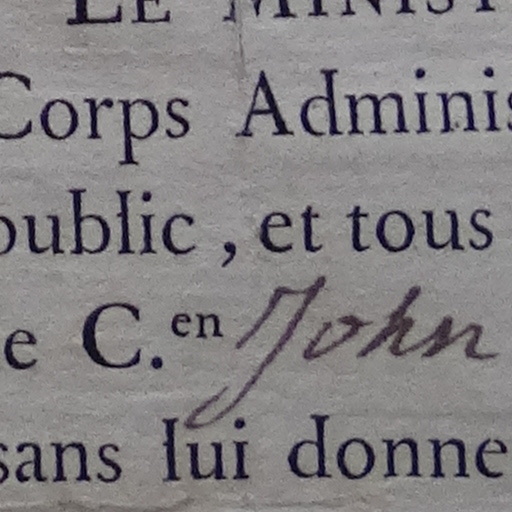 LE MINIST
Corps Adminis
public, et tous
e C.en John
sans lui donne